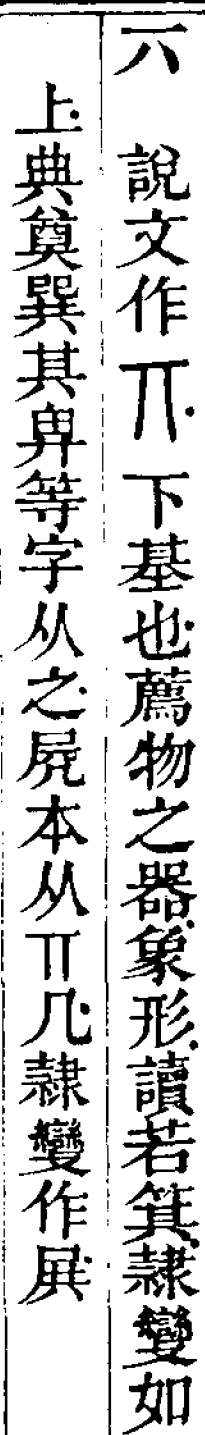 說文作丌下基也薦物之器象形讀若箕隸變如
上典奠巽其畀等字从之𡱂本从丌几隸變作